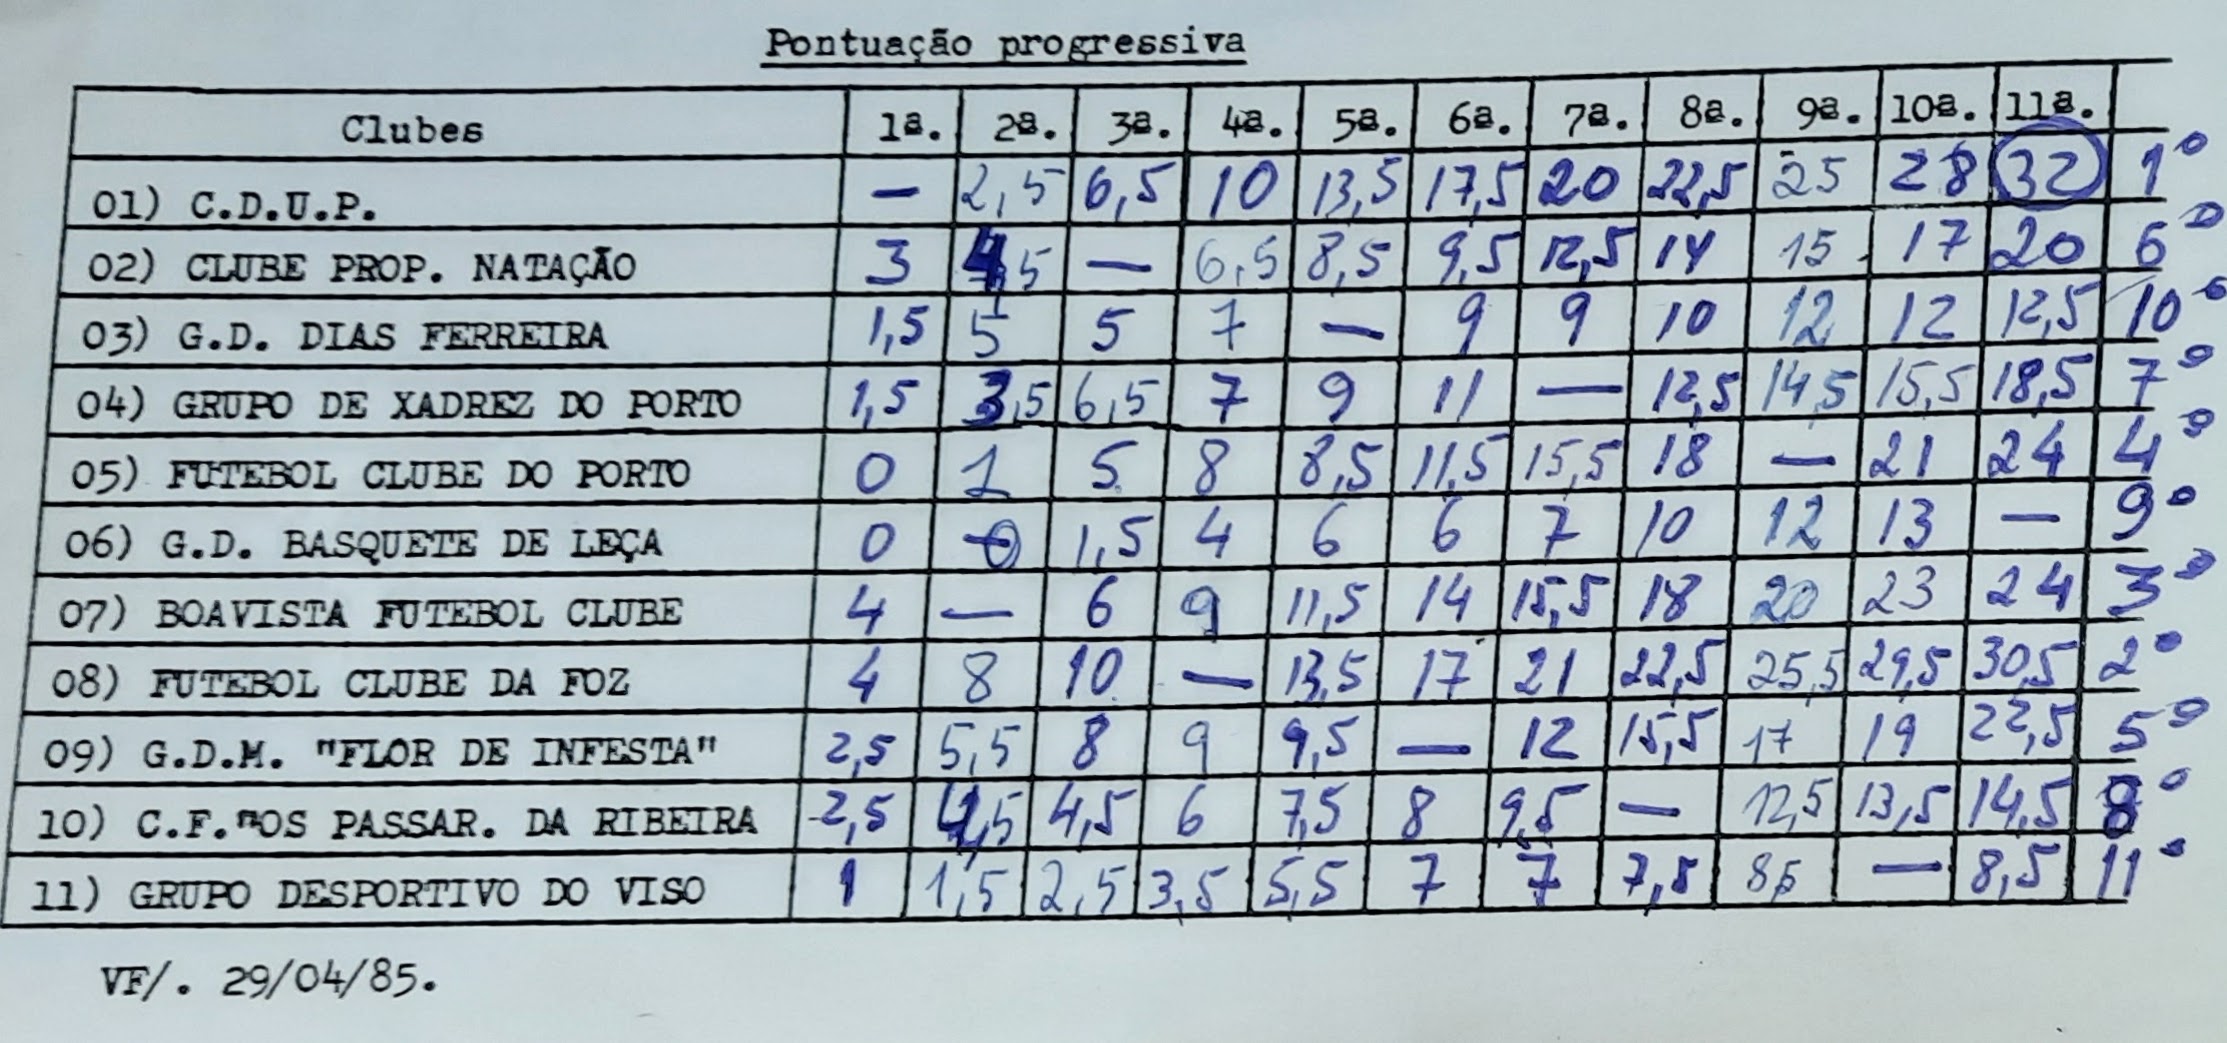 Pontuação progressiva
Clubes 1ª. 2ª. 3ª. 4ª. 5ª. 6ª. 7ª. 8ª. 9ª. 10ª. 11ª.
01) C.D.U.P. — 2,5 6,5 10 13,5 17,5 20 22,5 25 28 32 1º
02) CLUBE PROP. NATAÇÃO 3 4,5 — 6,5 8,5 9,5 12,5 14 15 17 20 6º
03) G.D. DIAS FERREIRA 1,5 5 5 7 — 9 9 10 12 12 12,5 10º
04) GRUPO DE XADREZ DO PORTO 1,5 3,5 6,5 7 9 11 — 12,5 14,5 15,5 18,5 7º
05) FUTEBOL CLUBE DO PORTO 0 1 5 8 8,5 11,5 15,5 18 — 21 24 4º
06) G.D. BASQUETE DE LEÇA 0 0 1,5 4 6 6 7 10 12 13 — 9º
07) BOAVISTA FUTEBOL CLUBE 4 — 6 9 11,5 14 15,5 18 20 23 24 3º
08) FUTEBOL CLUBE DA FOZ 4 8 10 — 13,5 17 21 22,5 25,5 29,5 30,5 2º
09) G.D.M. "FLOR DE INFESTA" 2,5 5,5 8 9 9,5 — 12 15,5 17 19 22,5 5º
10) C.F."OS PASSAR. DA RIBEIRA 2,5 4,5 4,5 6 7,5 8 9,5 — 12,5 13,5 14,5 8º
11) GRUPO DESPORTIVO DO VISO 1 1,5 2,5 3,5 5,5 7 7 7,5 8,5 — 8,5 11º
VF/. 29/04/85.